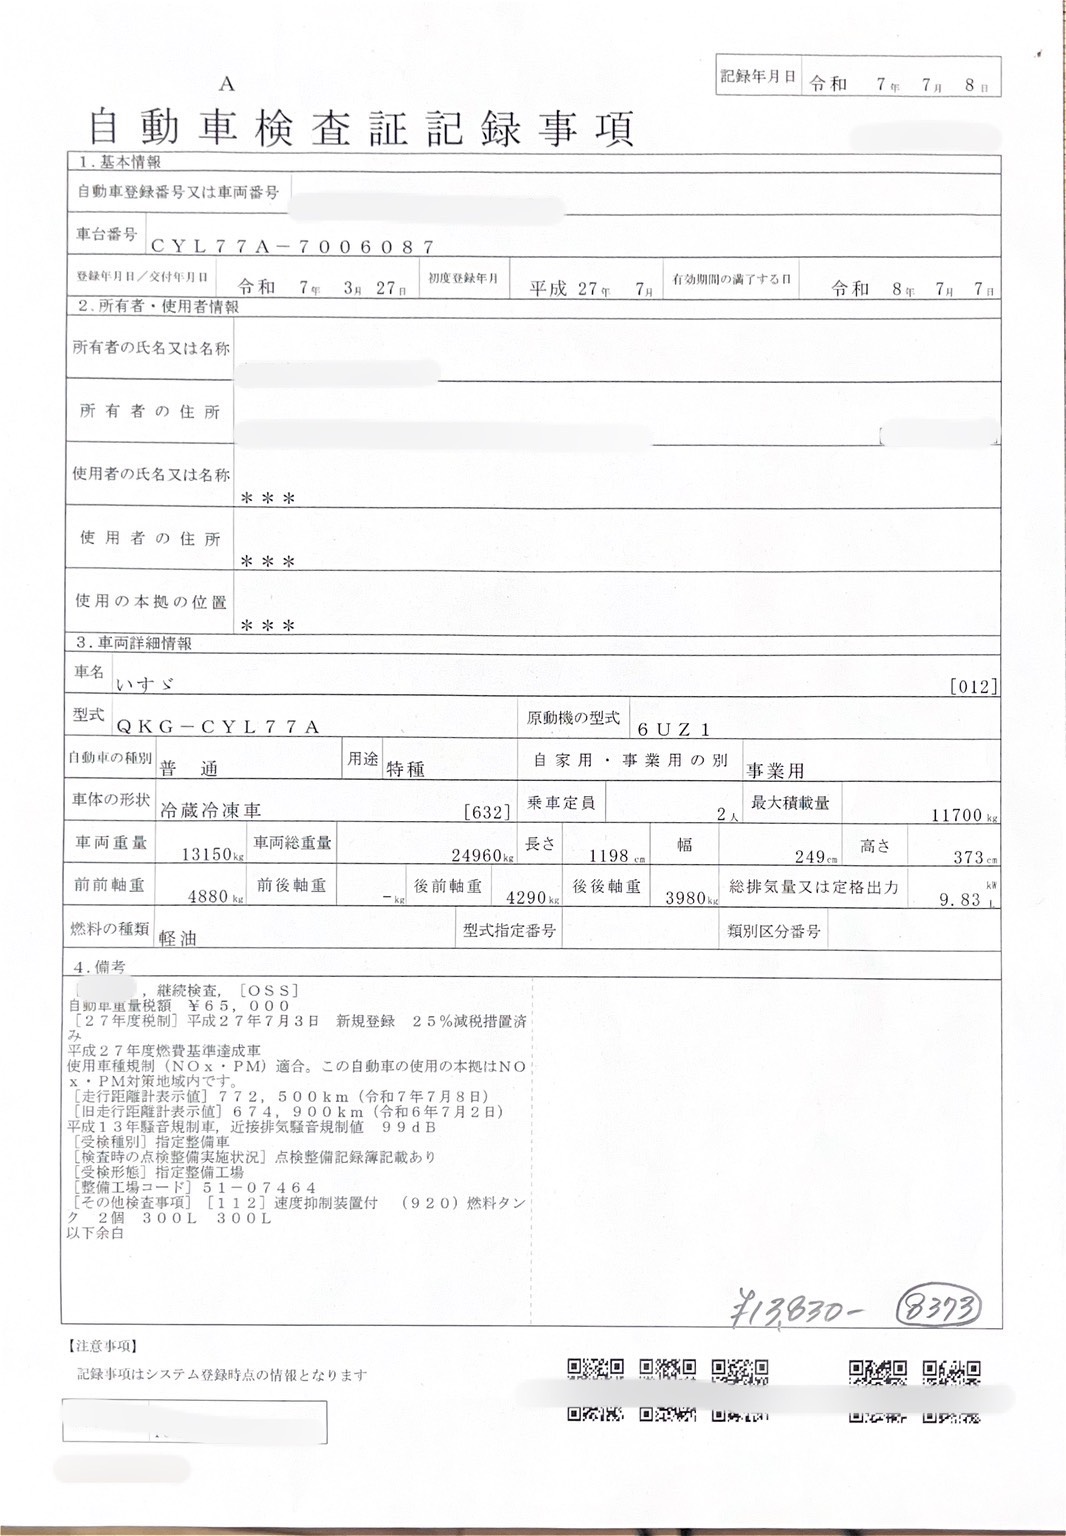 記録年月日 令和 7年 7月 8日
A
自動車検査証記録事項
1.基本情報
自動車登録番号又は車両番号
車台番号 CYL77A-7006087
登録年月日/交付年月日 令和 7年 3月 27日 初度登録年月 平成 27年 7月 有効期間の満了する日 令和 8年 7月 7日
2.所有者・使用者情報
所有者の氏名又は名称
所有者の住所
使用者の氏名又は名称 ***
使用者の住所 ***
使用の本拠の位置 ***
3.車両詳細情報
車名 いすゞ [012]
型式 QKG-CYL77A 原動機の型式 6UZ1
自動車の種別 普通 用途 特種 自家用・事業用の別 事業用
車体の形状 冷蔵冷凍車 [632] 乗車定員 2人 最大積載量 11700kg
車両重量 13150kg 車両総重量 24960kg 長さ 1198cm 幅 249cm 高さ 373cm
前前軸重 4880kg 前後軸重 -kg 後前軸重 4290kg 後後軸重 3980kg 総排気量又は定格出力 9.83 kW L
燃料の種類 軽油 型式指定番号 類別区分番号
4.備考
[ ,継続検査,[OSS]
自動車重量税額 ¥65,000
[27年度税制]平成27年7月3日 新規登録 25%減税措置済
み
平成27年度燃費基準達成車
使用車種規制(NOx・PM)適合。この自動車の使用の本拠はNO
x・PM対策地域内です。
[走行距離計表示値]772,500km(令和7年7月8日)
[旧走行距離計表示値]674,900km(令和6年7月2日)
平成13年騒音規制車,近接排気騒音規制値 99dB
[受検種別]指定整備車
[検査時の点検整備実施状況]点検整備記録簿記載あり
[受検形態]指定整備工場
[整備工場コード]51-07464
[その他検査事項][112]速度抑制装置付 (920)燃料タン
ク 2個 300L 300L
以下余白
¥13,830- 8373
【注意事項】
記録事項はシステム登録時点の情報となります